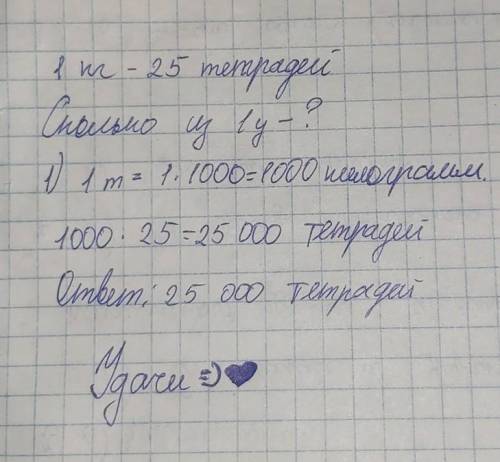 1 кг - 25 тетрадей
Сколько из 1ц - ?
1) 1 т = 1 · 1000 = 1000 килограмм.
1000 · 25 = 25 000 тетрадей
Ответ: 25 000 тетрадей
Удачи =)